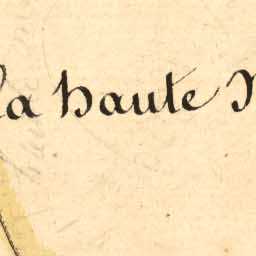 la haute